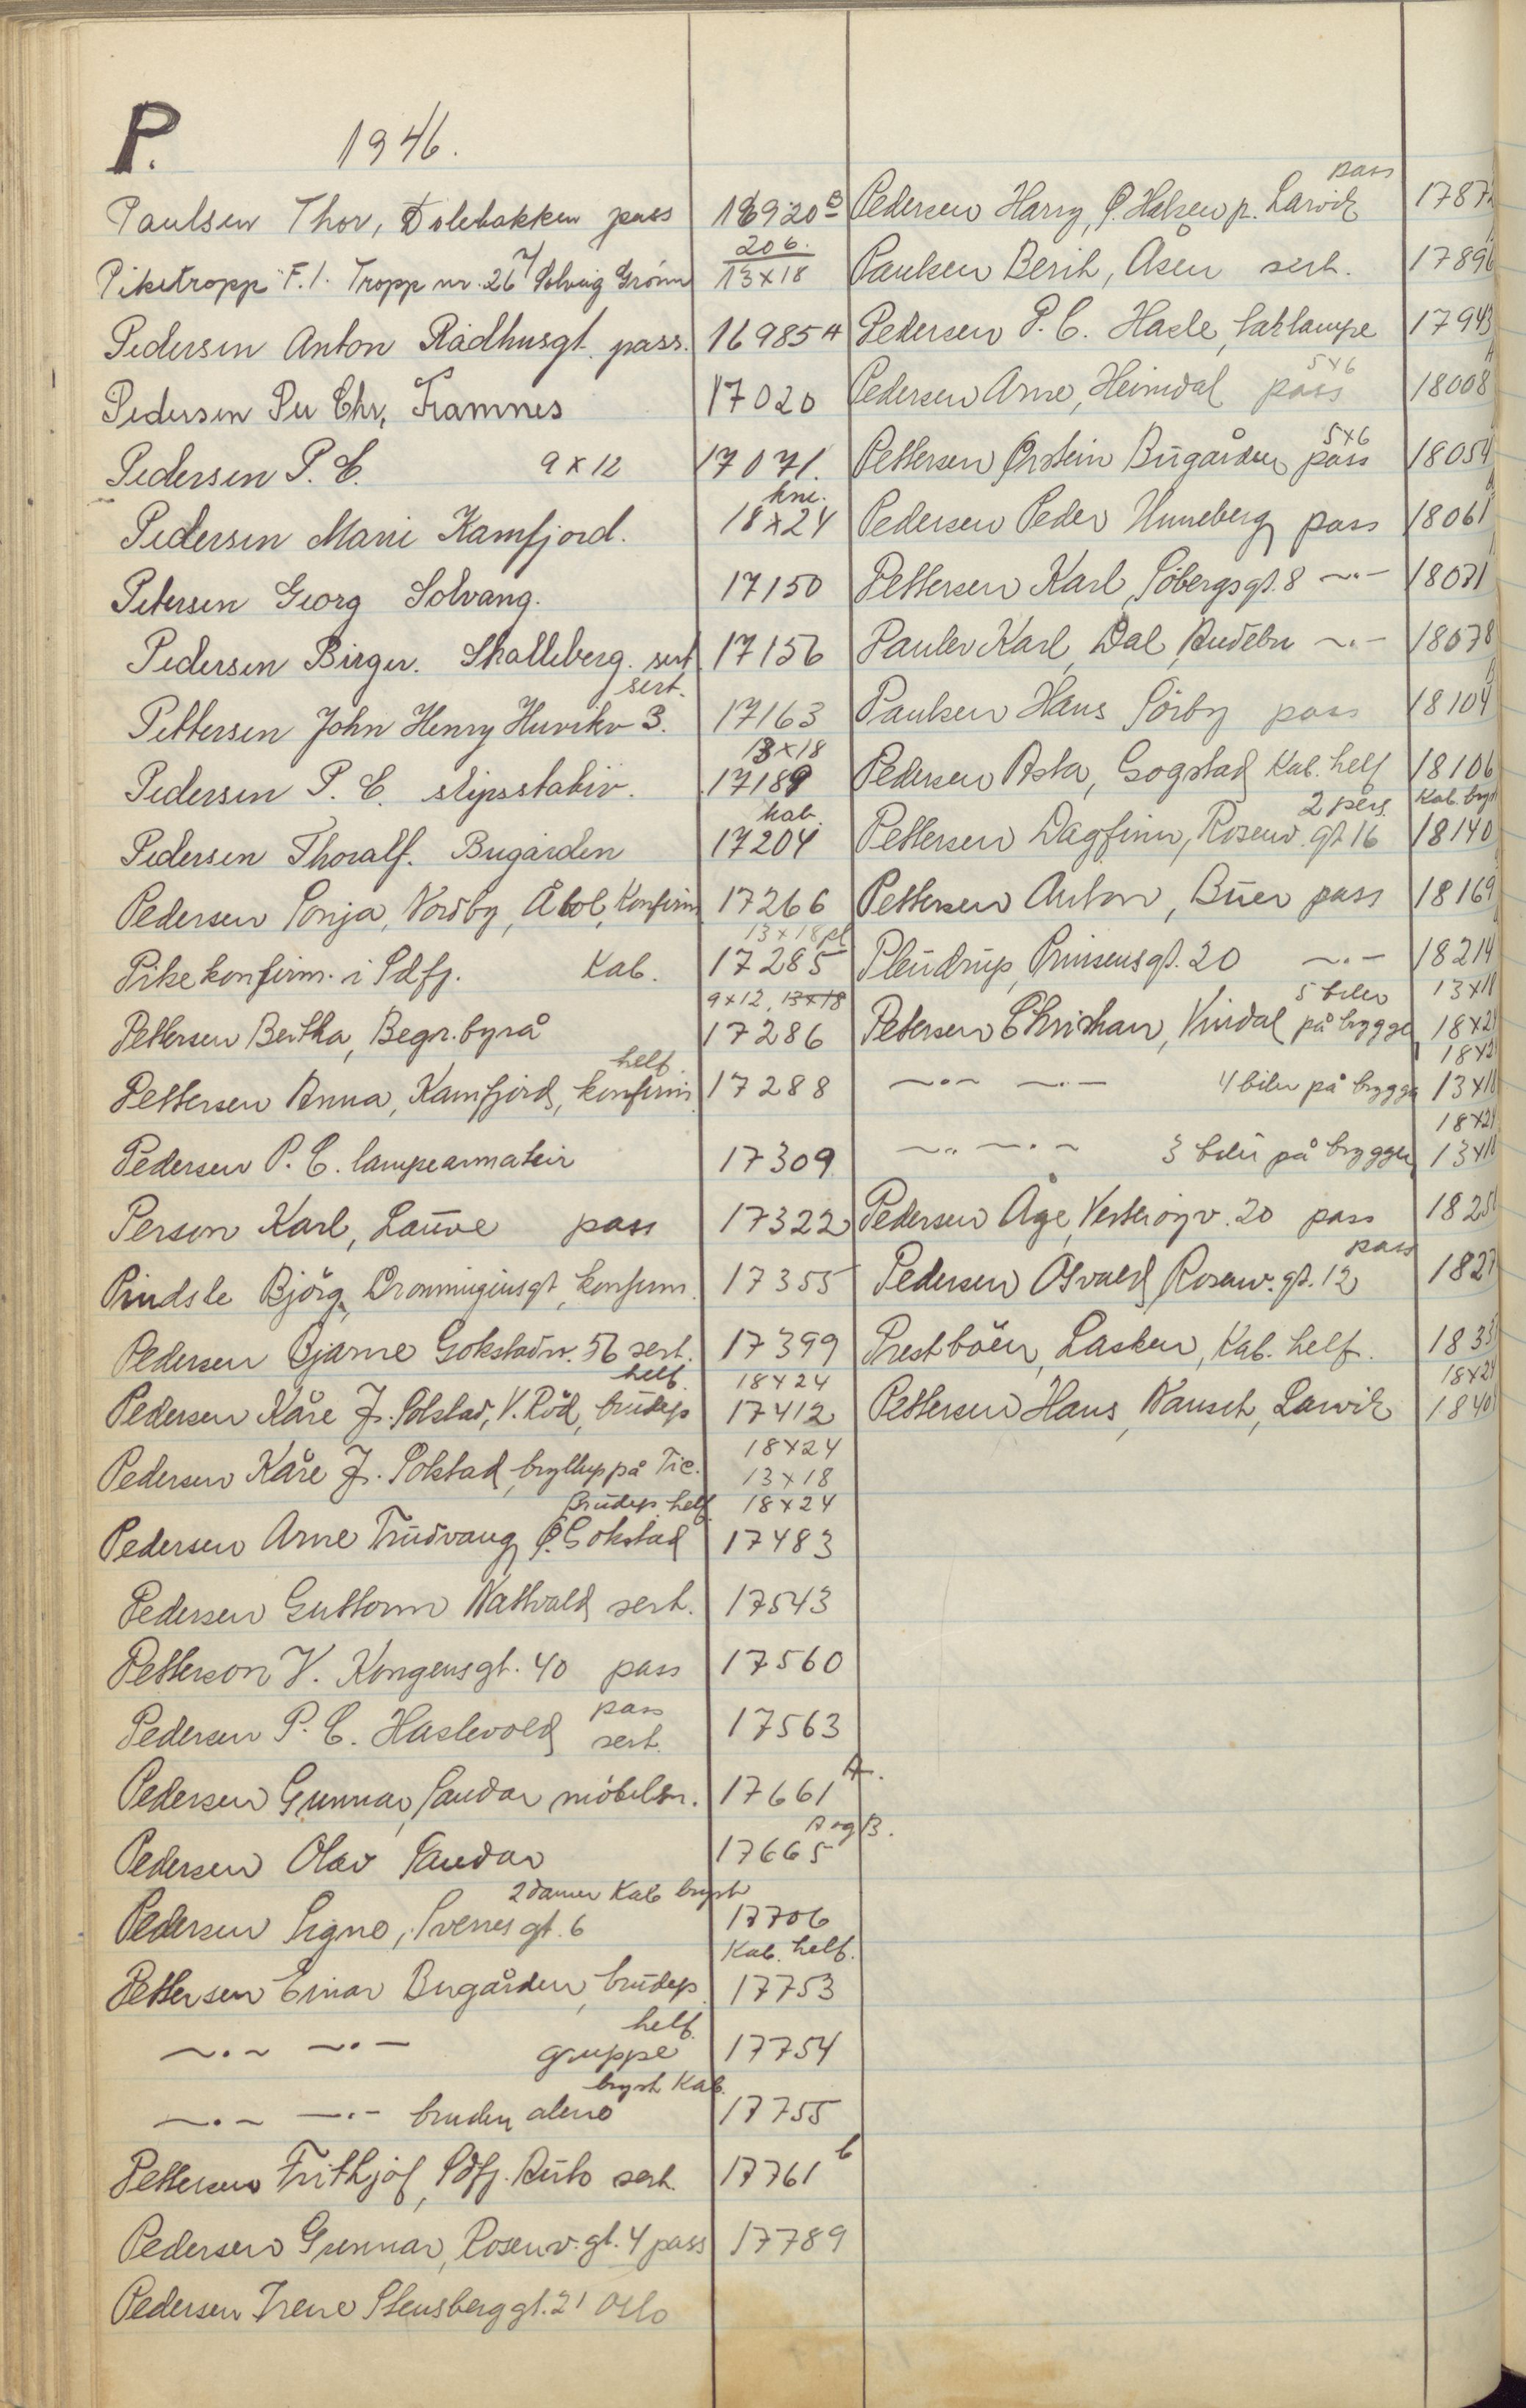 P. 1946.
Paulsen Thor, Dølebakken pass 16920 B
Piketropp F.1. Tropp nr. 26 v/ Solveig Grönn 206. 13x18
Pedersen Anton Rådhusgt. pass. 16985 A
Pedersen Per Chr, Framnes 17020
Pedersen P. C. 9 x 12 17071.
Pedersen Marie Kamfjord. kne. 18x24
Petersen Georg Solvang. 17150
Pedersen Birger. Skalleberg. sert 17156
Pettersen John Henry Huvikv 3. sert. 17163
Pedersen P. C. slipsstativ. 13x18 17189
Pedersen Thoralf. Bugården kab. 17204
Pedersen Sonja, Nordby, Åbol, Konfirm 17266
Pikekonfirm. i Sdfj. Kab. 13x18 pl 17285
Pettersen Bertha, Begr.byrå 9x12, 13x18 17286
Pettersen Anna, Kamfjord, konfirm helf. 17288
Pedersen P. C. lampearmatur 17309
Person Karl, Lauve pass 17322
Pindsle Björg, Dronningensgt, konfirm. 17355
Pedersen Bjarne Gokstadv. 56 sert. 17399
Pedersen Kåre J. Solstad, V. Röd, brudep helf. 18x24 17412
Pedersen Kåre J. Solstad, bryllup på Tie. 18x24 13x18
Pedersen Arne Trudvang Ø. Gokstad Brudep. helf 18x24 17483
Pedersen Guttorm Nattvald sert. 17543
Petterson V. Kongensgt. 40 pass 17560
Pedersen P. C. Haslevold pass sert. 17563
Pedersen Gunnar, Sandar möbelsn. 17661 A.
Pedersen Olav Sandar 17665 A og B.
Pedersen Signe, Sverresgt. 6 2 damer Kab bryst 17706
Pettersen Einar Bugården, brudep Kab. helf. 17753
~.~ ~.~ gruppe helf. 17754
~.~ ~.~ bruden alene bryst Kab. 17755
Pettersen Frithjof, Sdfj. Auto sert. 17761 C
Pedersen Gunnar, Rosenv.gt. 4 pass 17789
Pedersen Irene Stensberggt. 21 Oslo
Pedersen Harry, Ø. Halsen p. Larvik pass 1787
Paulsen Berit, Åsen sert. 17896
Pedersen P. C. Hasle, taklampe 17943
Pedersen Arne, Heimdal pass 5x6 18008
Pettersen Ørstein Bugården pass 5x6 18054
Pedersen Peder Unneberg pass 18061
Pettersen Karl, Söbergsgt. 8 ~.~ 18071
Paulev Karl, Dal, Andebu ~.~ 18078
Paulsen Hans Sörby pass 18104
Pedersen Asta, Gogstad Kab. helf 18106
Pettersen Dagfinn, Rosenv. gt 16 2 pers. Kab. bryst 18140
Pettersen Anton, Buer pass 18169
Pleudrup, Prinsensgt. 20 ~.~ 18214
Petersen Christian, Vindal 5 biler på brygge 13x18 18x24
~.~ ~.~ 4 biler på brygga 18x24 13x18
~.~ ~.~ 3 biler på bryggen 18x24 13x18
Pedersen Åge, Vesteröyv. 20 pass 1825
Pedersen Osvald, Rosenv. gt. 12 pass 1827
Prestböen, Lasken, Kab. helf. 1833
Pettersen Hans, Nanset, Larvik 18x24 1840